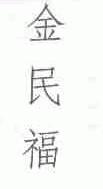 金民福